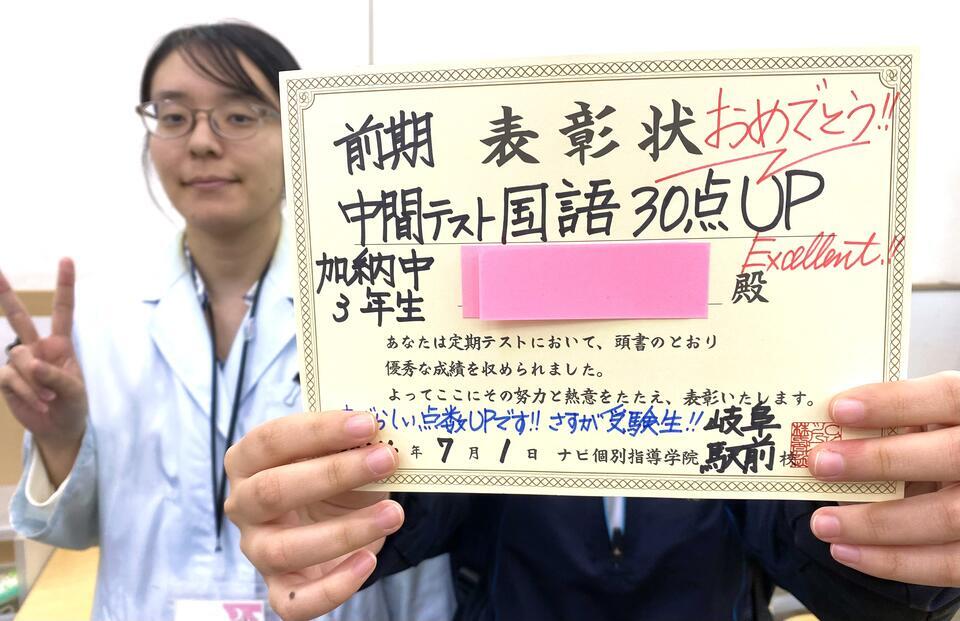 前期 表彰状 おめでとう!!
中間テスト国語30点UP
Excellent!!
加納中
3年生
殿
あなたは定期テストにおいて、頭書のとおり
優秀な成績を収められました。
よってここにその努力と熱意をたたえ、表彰いたします。
らしい点数UPです!! さすが受験生!!
年7月1日 ナビ個別指導学院 岐阜駅前校